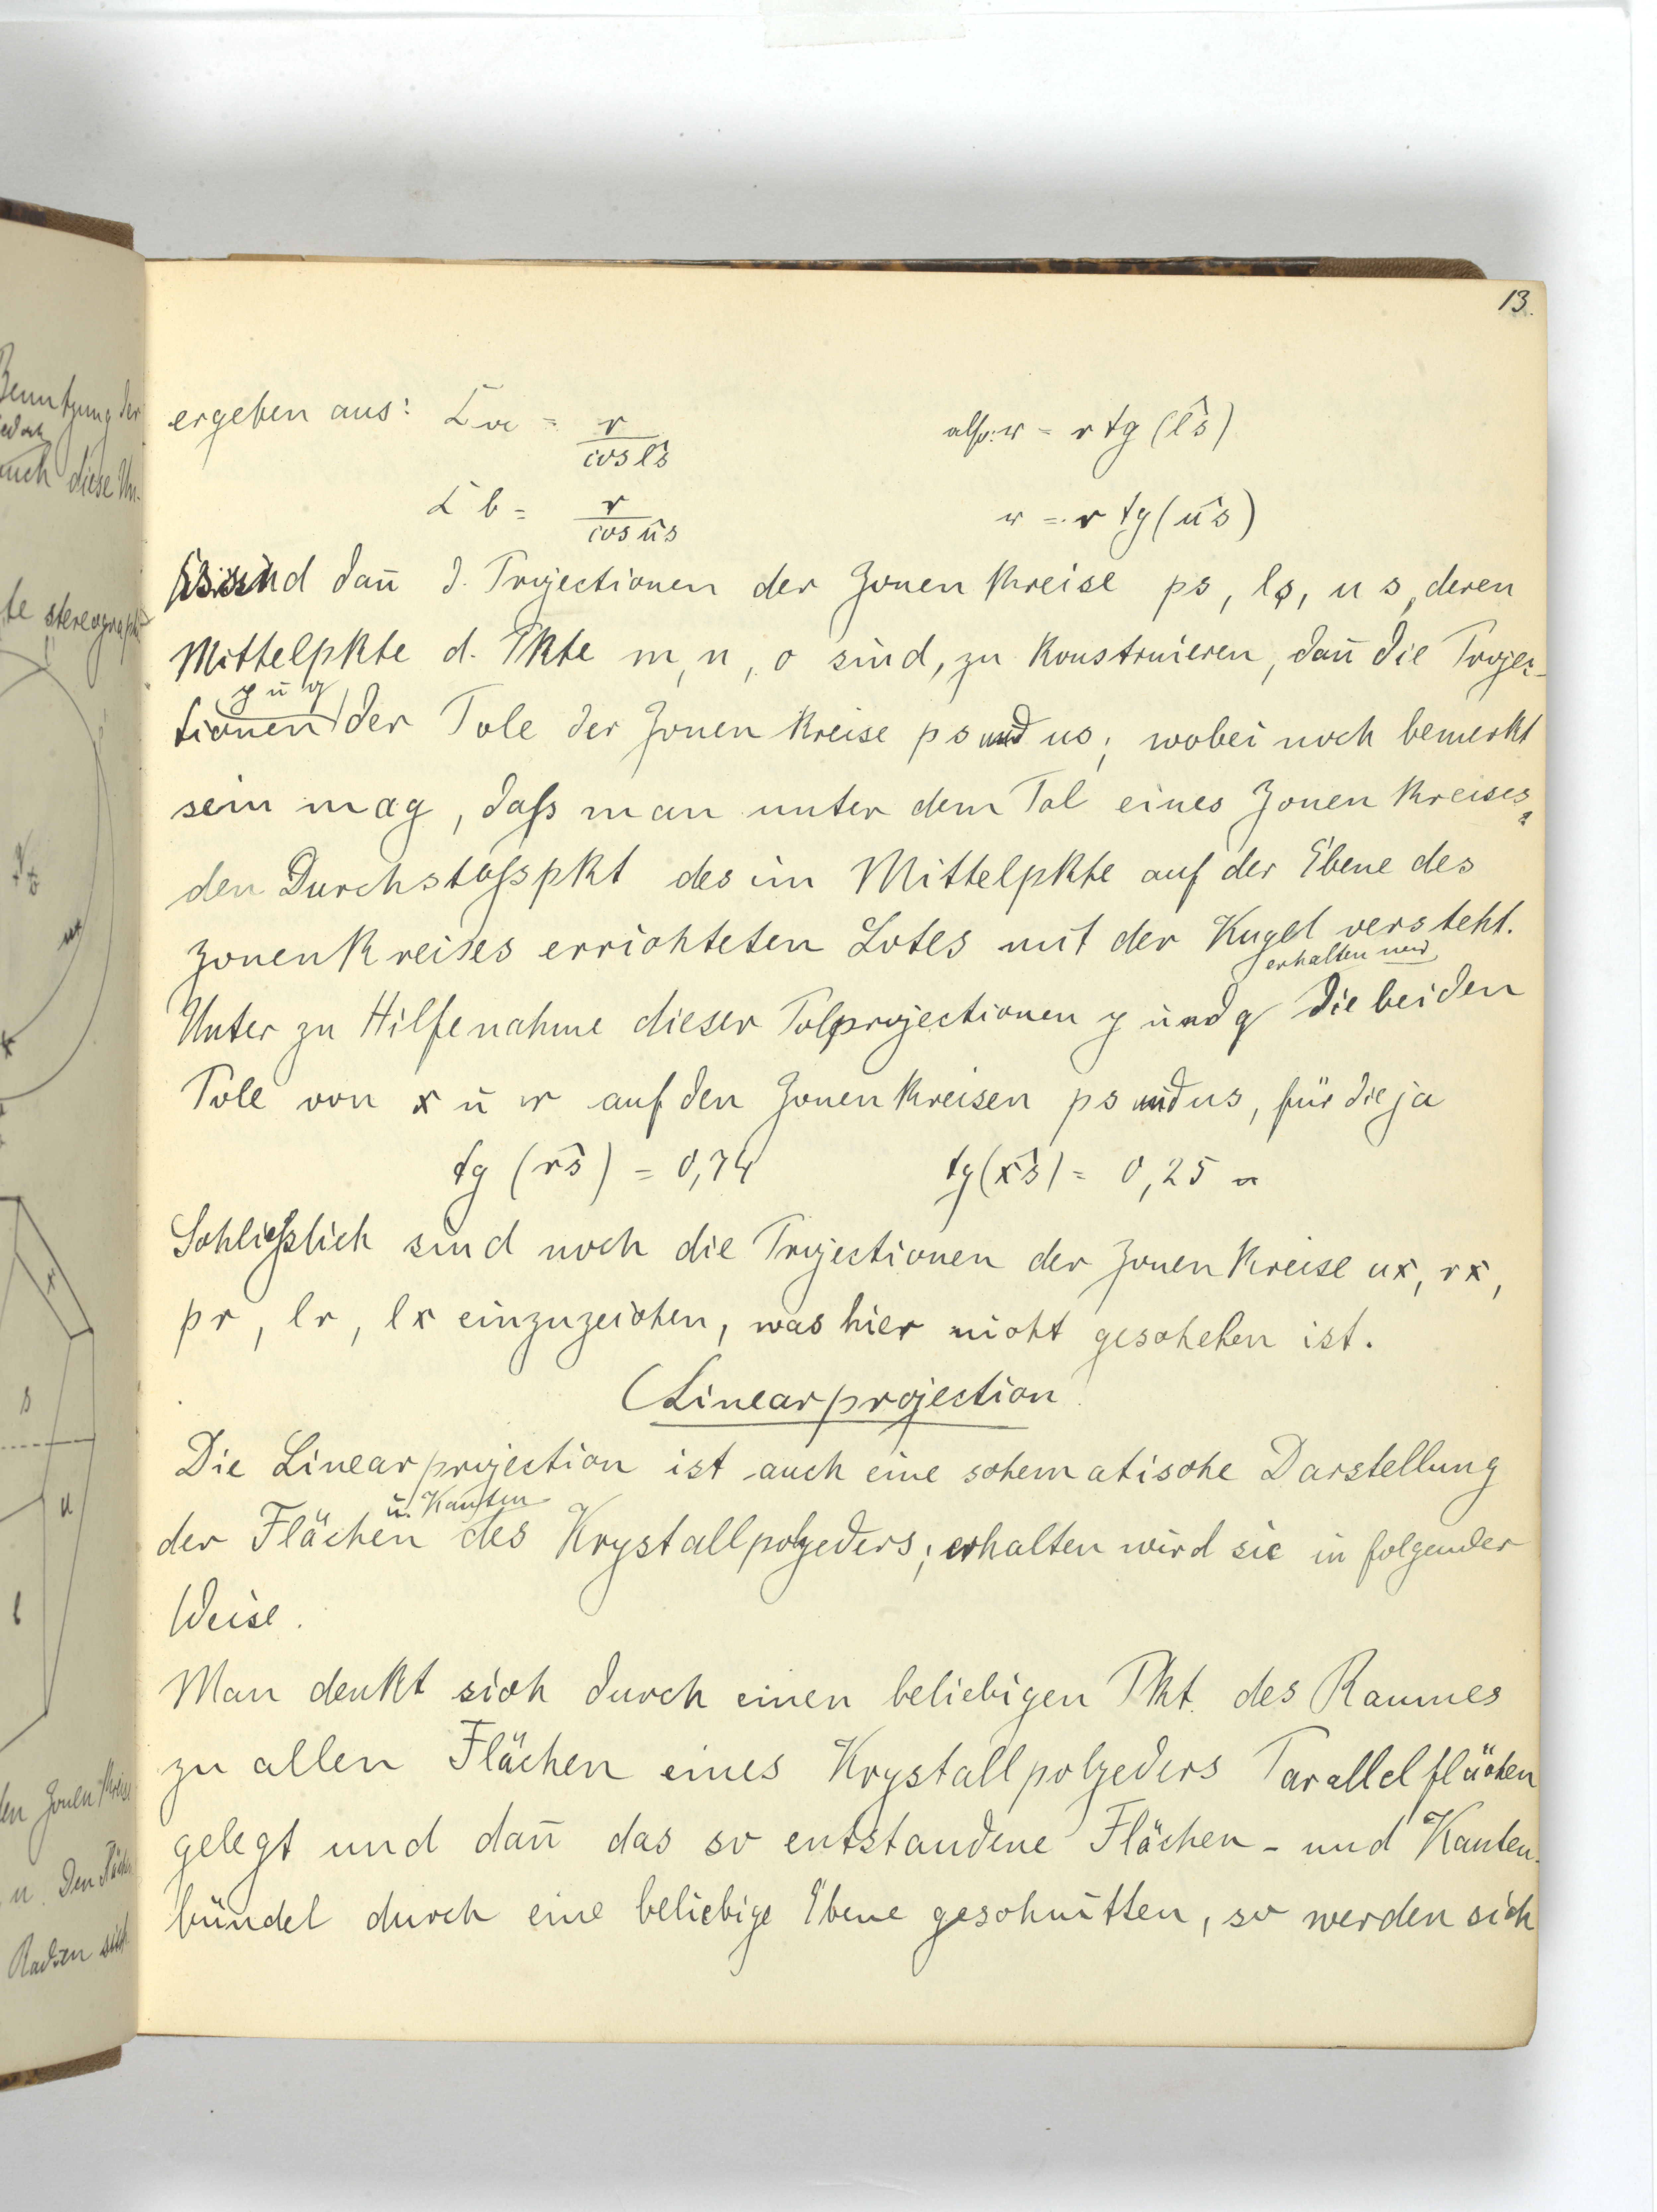 13.
ergeben aus: = r / cos l̂s also: = r tg (l̂s)
b = r / cos ûs = r tg (ûs)
sind dañ d. Projectionen der Zonenkreise ps, ls, us, deren
Mittelpkte d. Pkte m, n, o sind, zu konstruieren, dañ die Projec-
y ū q
tionen der Pole der Zonenkreise ps und us; wobei noch bemerkt
sein mag, daſs man unter dem Pol eines Zonenkreises
den Durchstoſspkt des im Mittelpkte auf der Ebene des
Zonenkreises errichteten Lotes mit der Kugel versteht.
erhalten
Unter zu Hilfenahme dieser Polprojectionen y und q die beiden
Pole von x ū r auf den Zonenkreisen ps und us, für die ja
tg (r̂s) = 0,74 tg (x̂s) = 0,25
Schlieſslich sind noch die Projectionen der Zonenkreise ux, rx,
pr, lr, lx einzuzeichen, was hier nicht geschehen ist.
Linearprojection
Die Linearprojection ist auch eine schematische Darstellung
u. Kanten
der Flächen des Krystallpolyeders; erhalten wird sie in folgender
Weise.
Man denkt sich durch einen beliebigen Pkt. des Raumes
zu allen Flächen eines Krystallpolyeders Parallelflächen
gelegt und dañ das so entstandene Flächen- und Kanten-
bündel durch eine beliebige Ebene geschnitten, so werden sich